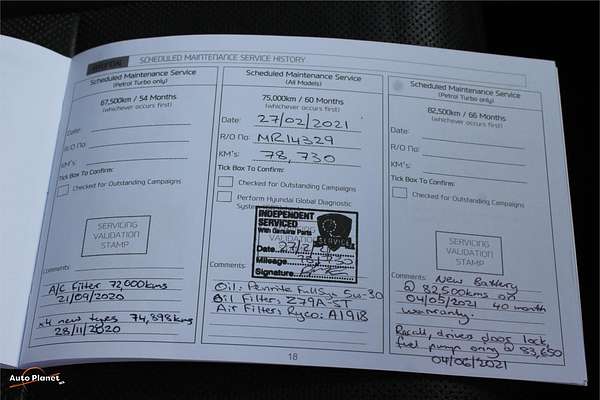 SCHEDULED MAINTENANCE SERVICE HISTORY
Scheduled Maintenance Service
(Petrol Turbo only)
67,500km / 54 Months
(whichever occurs first)
Date:
R/O No:
KM's:
Tick Box To Confirm:
Checked for Outstanding Campaigns
SERVICING
VALIDATION
STAMP
Comments:
A/C Filter 72,000kms
21/09/2020
x4 new tyres 74,898kms
28/11/2020
Scheduled Maintenance Service
(All Models)
75,000km / 60 Months
(whichever occurs first)
Date: 27/02/2021
R/O No: MR14329
KM's: 78,730
Tick Box To Confirm:
Checked for Outstanding Campaigns
Perform Hyundai Global Diagnostic
System
INDEPENDENT
SERVICED
With Genuine Parts
SERVICE
Date
Mileage
Signature
Comments:
Oil: Penrite Full Syn 5w-30
Oil Filter: Z79A-ST
Air Filter: Ryco: A1918
Scheduled Maintenance Service
(Petrol Turbo only)
82,500km / 66 Months
(whichever occurs first)
Date:
R/O No:
KM's:
Tick Box To Confirm:
Checked for Outstanding Campaigns
SERVICING
VALIDATION
STAMP
Comments: New Battery
@ 82,500kms on
04/05/2021 40 month
warranty.
Recall, drivers door lock,
fuel pump oring @ 83,650
04/06/2021
18
Auto Planet